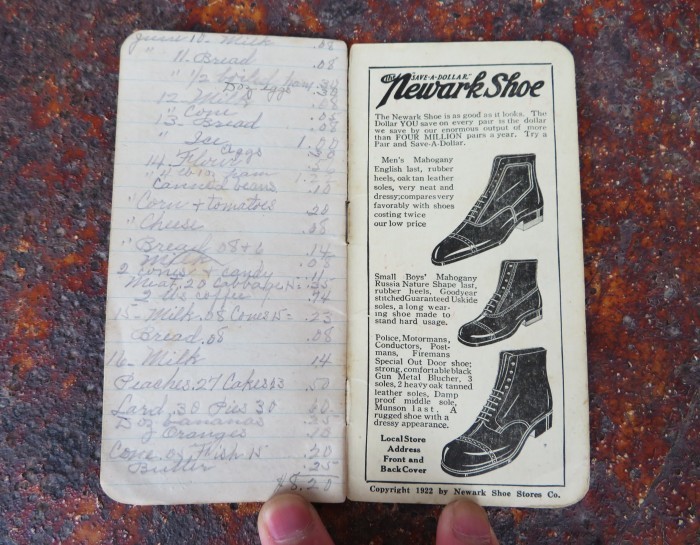 June 10. Milk .08
" 11. Bread .08
" 1/2 boiled ham
Doz Eggs
12 Milk .08
" Cone
13. Bread .08
" Ice 1.00
Eggs
14 Flour
Canned beans .10
" Corn & tomatoes .28
" Cheese .08
" Bread .08 & 6 .14
Milk .08
2 cones & candy .11
Meat, 20 Cabbage 15 .35
2 lbs coffee .74
15 - Milk .08 Cones 15 - .23
Bread .08 .08
16. Milk 14
Peaches 27 Cakes 23 .50
Lard .30 Pies 30 .60
Doz bananas .35
" Oranges .10
Cone .05 Fish 15 .20
Butter .25
$8.20
The "SAVE-A-DOLLAR"
Newark Shoe
The Newark Shoe is as good as it looks. The
Dollar YOU save on every pair is the dollar
we save by our enormous output of more
than FOUR MILLION pairs a year. Try a
Pair and Save-A-Dollar.
Men's Mahogany
English last, rubber
heels, oak tan leather
soles, very neat and
dressy; compares very
favorably with shoes
costing twice
our low price
Small Boys' Mahogany
Russia Nature Shape last,
rubber heels, Goodyear
stitched Guaranteed Uskide
soles, a long wear-
ing shoe made to
stand hard usage.
Police, Motormans,
Conductors, Post-
mans, Firemans
Special Out Door shoe;
strong, comfortable black
Gun Metal Blucher, 3
soles, 2 heavy oak tanned
leather soles, Damp
proof middle sole,
Munson last. A
rugged shoe with a
dressy appearance.
Local Store
Address
Front and
Back Cover
Copyright 1922 by Newark Shoe Stores Co.